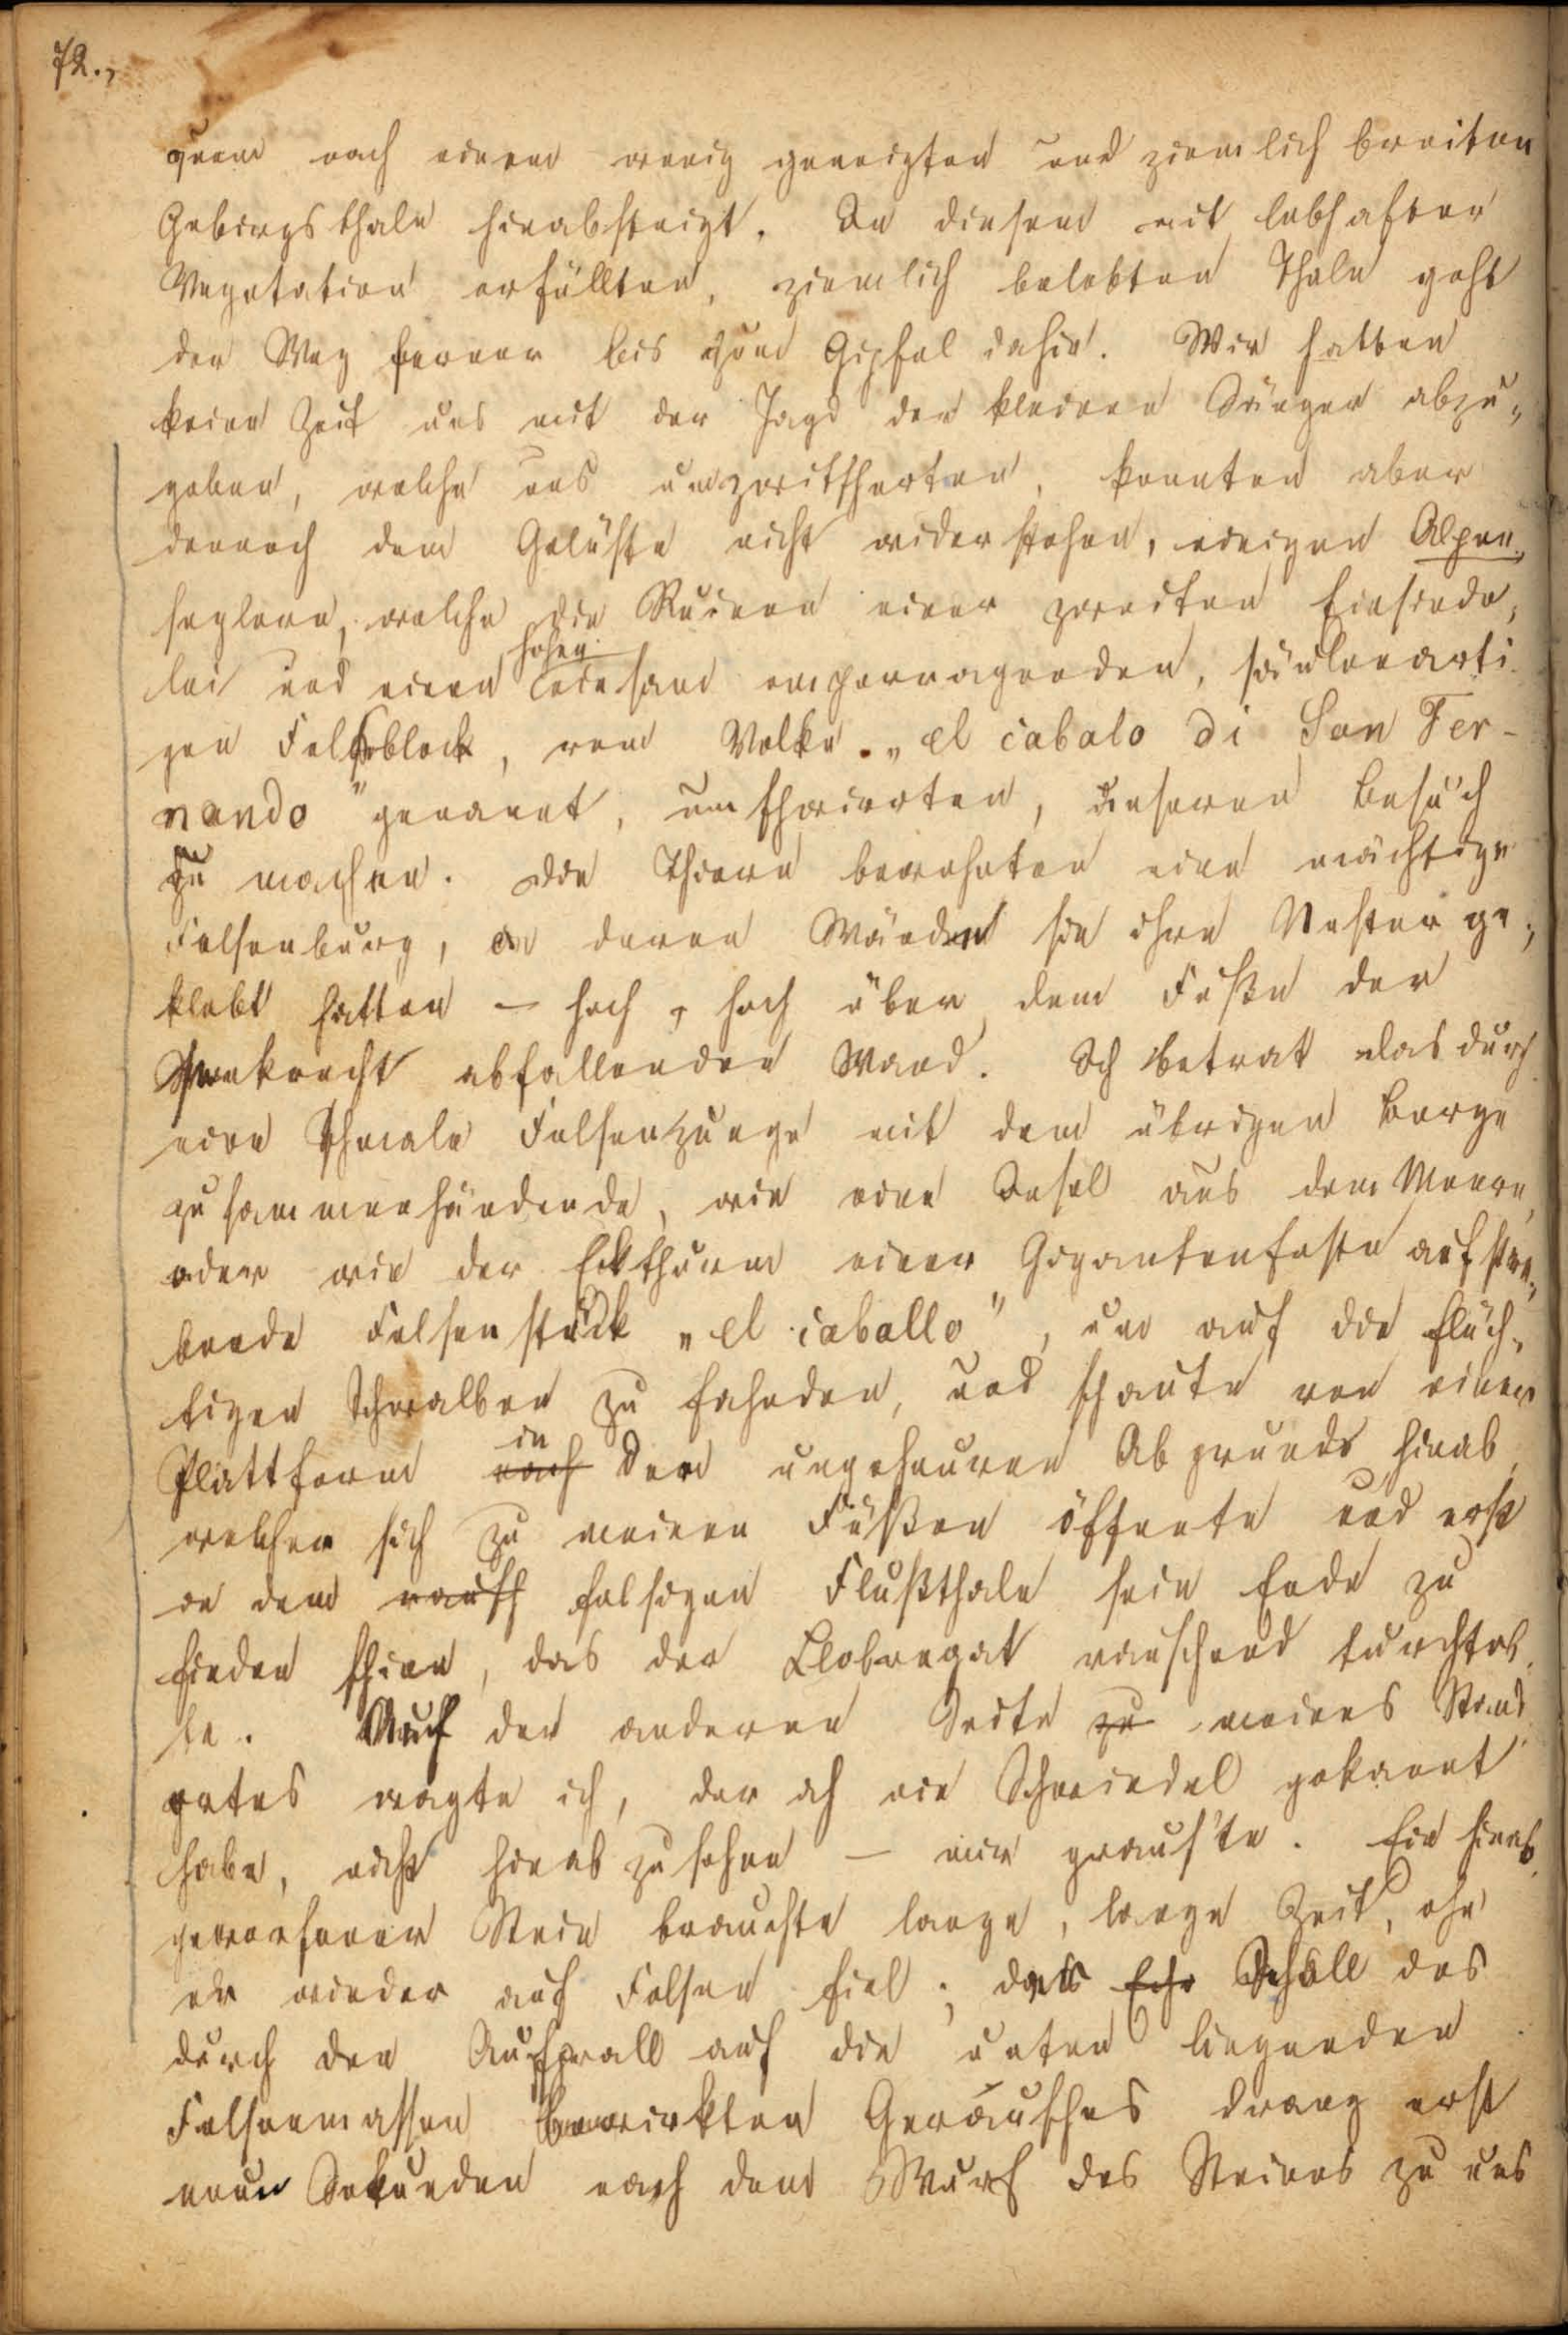 72.,
quem nach einem wenig geneigten und ziemlich breiten
Gebirgsthale hinabsteigt. In diesem mit lebhafter
Vegetation erfüllten, ziemlich belebten Thale geht
der Weg ferner bis zum Gipfel dahin. Wir hatten
keine Zeit uns mit der Jagd der kleinen Sänger abzu„
geben, welche uns umzwitscherten, konnten aber
dennoch dem Gelüste nicht widerstehen, einigen Alpen„
seglern, welche die Ruinen einer zweiten Einsiede„
hohen
lei und einen einsam emporragenden, säulenarti
gen Felsblock, vom Volke „el cabalo di San Fer-
nando" genannt, umschwirrten, unseren Besuch
zu machen. Die Thiere bewohnten eine mächtige
Felsenburg, an deren Wänden sie ihre Nester ge„
klebt hatten – hoch, hoch über dem Fuße der
senkrecht abfallenden Wand. Ich betrat das durch
eine schmale Felsenzunge mit dem übrigen Berge
zusammenhändende, wie eine Insel aus dem Meere,
oder wie der Eckthurm einer Gigantenfeste aufstre„
bende Felsenstück „el caballo", um auf die flüch„
tigen Schwalben zu fahnden, und schaute von einer
in
Plattform nach den ungeheuren Abgrunde hinab,
welcher sich zu meinen Füßen öffnete und erst
in dem rausch felsigen Flußthale sein Ende zu
finden schien, das der Llobregat rauschend durchtob
te. Auf der anderen Seite zu meines Stand
ortes wagte ich, der ich nie Schwindel gekannt
habe, nicht hinabzusehen – mir graus'te. Ein hinab
geworfener Stein brauchte lange, lange Zeit, ehe
er wieder auf Felsen fiel; der Echo Schall des
durch den Aufprall auf die unten liegenden
Felsenmassen bewirkten Geräusches drang erst
neun Sekunden nach dem Wurf des Steines zu uns